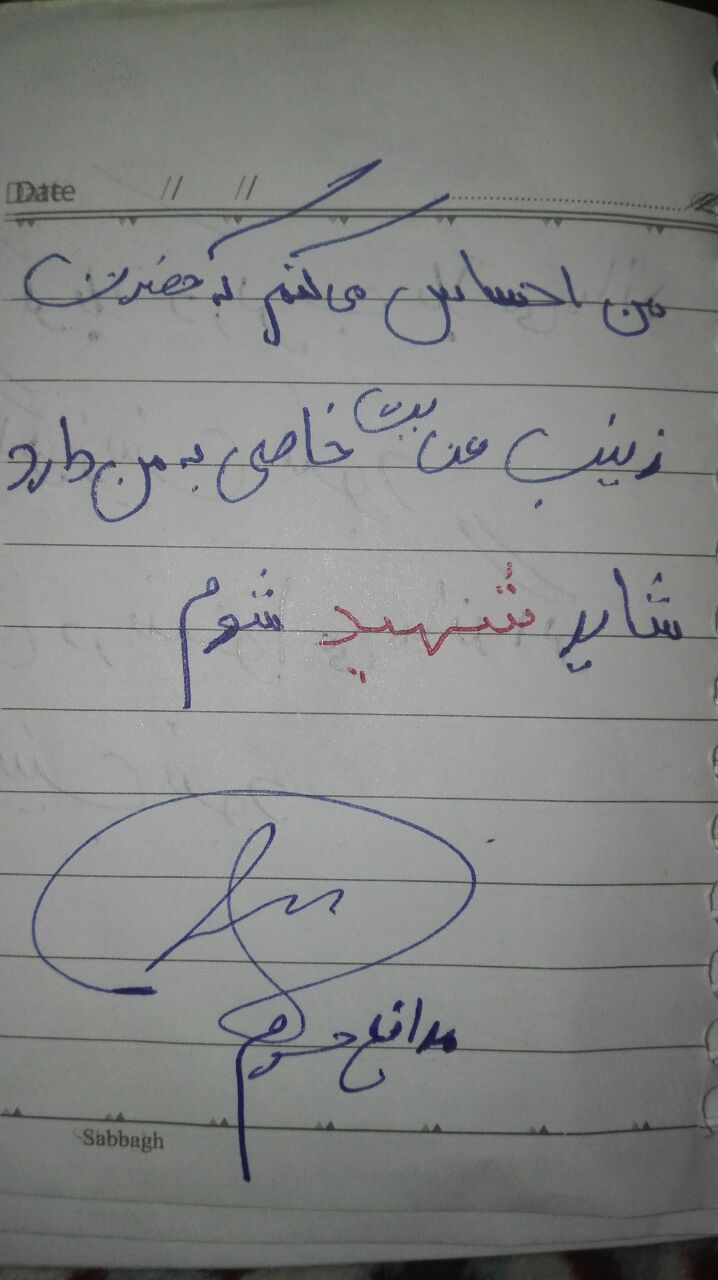 Date // //
من احساس می کنم که حضرت
زینب عنایت خاصی به من دارد
شاید شهید شوم
مدافع حرم
Sabbagh